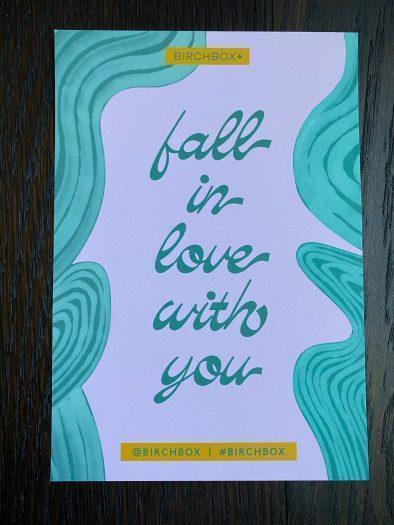 BIRCHBOX+
fall
in
love
with
you
@BIRCHBOX | #BIRCHBOX